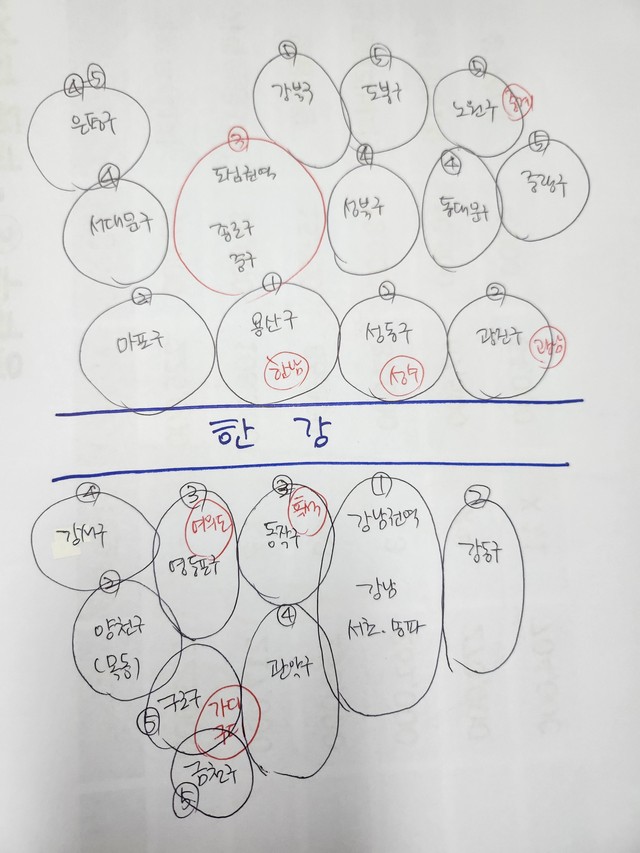 ④ ⑤
은평구
⑤
강북구
⑤
도봉구
⑤
노원구
중계
④
서대문구
③
도심권역
종로구
중구
④
성북구
④
동대문구
⑤
중랑구
②
마포구
①
용산구
한남
②
성동구
성수
②
광진구
광남
한 강
④
강서구
③
여의도
영등포구
③
흑석
동작구
①
강남권역
강남
서초.송파
②
강동구
②
양천구
(목동)
④
관악구
구로구
가디
구디
⑤
금천구
⑤